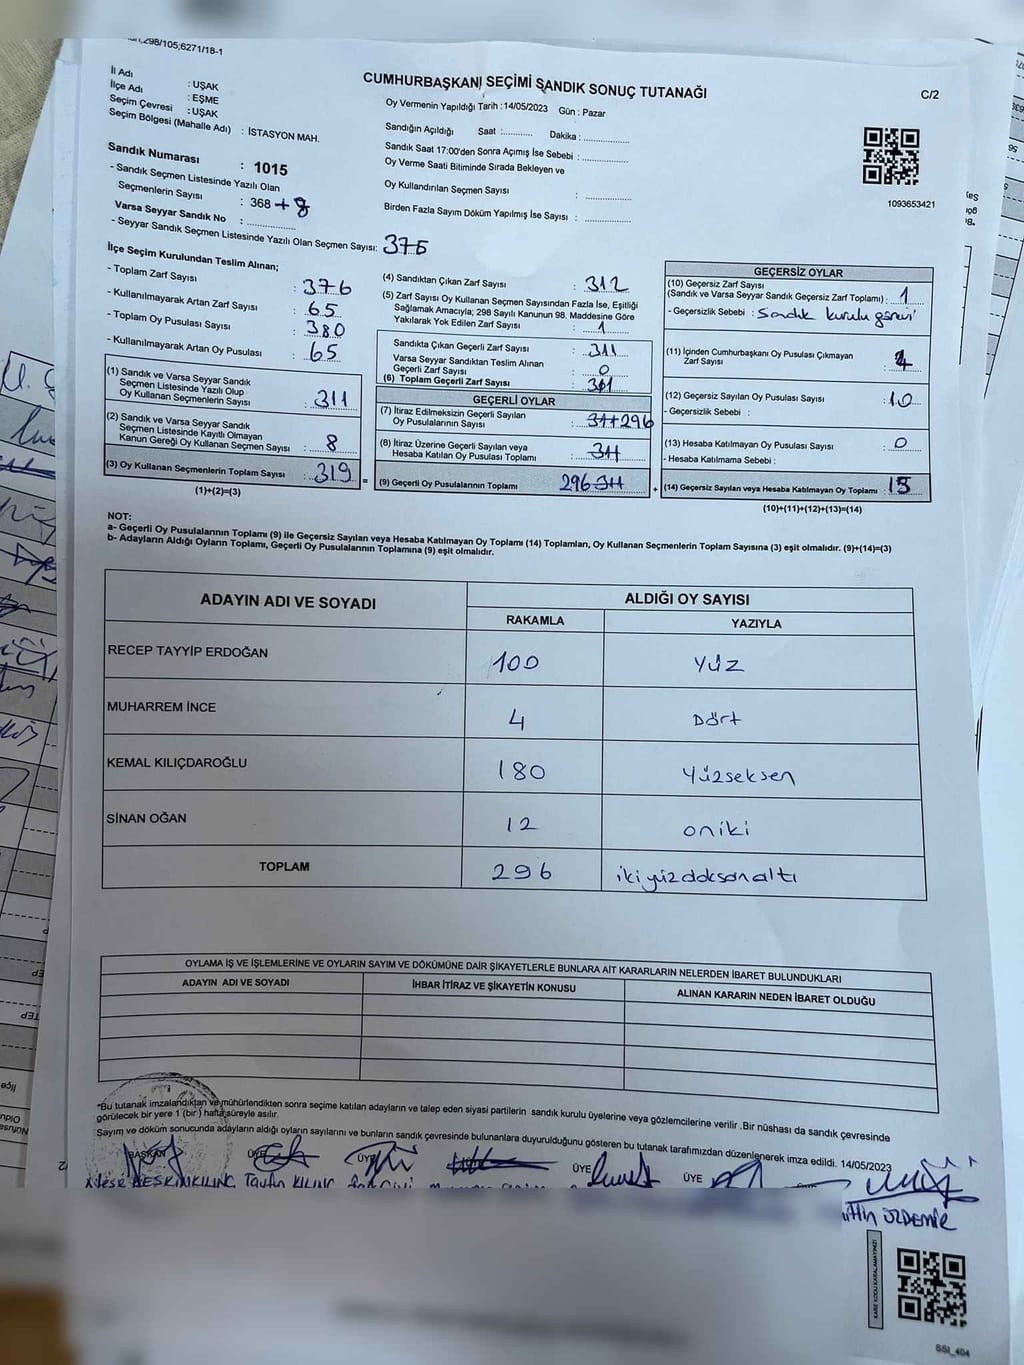 298/105;6271/18-1
CUMHURBAŞKANI SEÇİMİ SANDIK SONUÇ TUTANAĞI
C/2
İl Adı : UŞAK
İlçe Adı : EŞME
Seçim Çevresi : UŞAK
Seçim Bölgesi (Mahalle Adı) : İSTASYON MAH.
Oy Vermenin Yapıldığı Tarih : 14/05/2023 Gün : Pazar
Sandığın Açıldığı Saat :........... Dakika :
Sandık Saat 17:00'den Sonra Açımış İse Sebebi :
Oy Verme Saati Bitiminde Sırada Bekleyen ve
Oy Kullandırılan Seçmen Sayısı :
Birden Fazla Sayım Döküm Yapılmış İse Sayısı :
1093653421
Sandık Numarası : 1015
- Sandık Seçmen Listesinde Yazılı Olan
Seçmenlerin Sayısı : 368 + 8
Varsa Seyyar Sandık No :
- Seyyar Sandık Seçmen Listesinde Yazılı Olan Seçmen Sayısı:
İlçe Seçim Kurulundan Teslim Alınan;
- Toplam Zarf Sayısı : 376
- Kullanılmayarak Artan Zarf Sayısı : 65
- Toplam Oy Pusulası Sayısı : 380
- Kullanılmayarak Artan Oy Pusulası : 65
(1) Sandık ve Varsa Seyyar Sandık
Seçmen Listesinde Yazılı Olup
Oy Kullanan Seçmenlerin Sayısı : 311
(2) Sandık ve Varsa Seyyar Sandık
Seçmen Listesinde Kayıtlı Olmayan
Kanun Gereği Oy Kullanan Seçmen Sayısı : 8
(3) Oy Kullanan Seçmenlerin Toplam Sayısı : 319
(1)+(2)=(3)
(4) Sandıktan Çıkan Zarf Sayısı : 312
(5) Zarf Sayısı Oy Kullanan Seçmen Sayısından Fazla İse, Eşitliği
Sağlamak Amacıyla; 298 Sayılı Kanunun 98. Maddesine Göre
Yakılarak Yok Edilen Zarf Sayısı : 1
Sandıkta Çıkan Geçerli Zarf Sayısı : 311
Varsa Seyyar Sandıktan Teslim Alınan
Geçerli Zarf Sayısı : 0
(6) Toplam Geçerli Zarf Sayısı :
GEÇERLİ OYLAR
(7) İtiraz Edilmeksizin Geçerli Sayılan
Oy Pusulalarının Sayısı : 311 296
(8) İtiraz Üzerine Geçerli Sayılan veya
Hesaba Katılan Oy Pusulası Toplamı : 311
(9) Geçerli Oy Pusulalarının Toplamı 296 311
GEÇERSİZ OYLAR
(10) Geçersiz Zarf Sayısı
(Sandık ve Varsa Seyyar Sandık Geçersiz Zarf Toplamı) : 1
- Geçersizlik Sebebi : Sandık kurulu görevi
(11) İçinden Cumhurbaşkanı Oy Pusulası Çıkmayan
Zarf Sayısı : 4
(12) Geçersiz Sayılan Oy Pusulası Sayısı : 10
- Geçersizlik Sebebi :
(13) Hesaba Katılmayan Oy Pusulası Sayısı : 0
- Hesaba Katılmama Sebebi :
(14) Geçersiz Sayılan veya Hesaba Katılmayan Oy Toplamı : 15
(10)+(11)+(12)+(13)=(14)
NOT:
a- Geçerli Oy Pusulalarının Toplamı (9) ile Geçersiz Sayılan veya Hesaba Katılmayan Oy Toplamı (14) Toplamları, Oy Kullanan Seçmenlerin Toplam Sayısına (3) eşit olmalıdır. (9)+(14)=(3)
b- Adayların Aldığı Oyların Toplamı, Geçerli Oy Pusulalarının Toplamına (9) eşit olmalıdır.
ADAYIN ADI VE SOYADI ALDIĞI OY SAYISI
RAKAMLA YAZIYLA
RECEP TAYYİP ERDOĞAN 100 Yüz
MUHARREM İNCE 4 Dört
KEMAL KILIÇDAROĞLU 180 Yüzseksen
SİNAN OĞAN 12 oniki
TOPLAM 296 ikiyüzdoksanaltı
OYLAMA İŞ VE İŞLEMLERİNE VE OYLARIN SAYIM VE DÖKÜMÜNE DAİR ŞİKAYETLERLE BUNLARA AİT KARARLARIN NELERDEN İBARET BULUNDUKLARI
ADAYIN ADI VE SOYADI İHBAR İTİRAZ VE ŞİKAYETİN KONUSU ALINAN KARARIN NEDEN İBARET OLDUĞU
*Bu tutanak imzalandıktan ve mühürlendikten sonra seçime katılan adayların ve talep eden siyasi partilerin sandık kurulu üyelerine veya gözlemcilerine verilir .Bir nüshası da sandık çevresinde
görülecek bir yere 1 (bir ) hafta süreyle asılır.
Sayım ve döküm sonucunda adayların aldığı oyların sayılarını ve bunların sandık çevresinde bulunanlara duyurulduğunu gösteren bu tutanak tarafımızdan düzenlenerek imza edildi. 14/05/2023
BAŞKAN ÜYE ÜYE ÜYE ÜYE
KESKİNKILINÇ Tayfun KILINÇ
ÖZDEMİR
KARE KODU KARALAMAYINIZ!
SSI_404